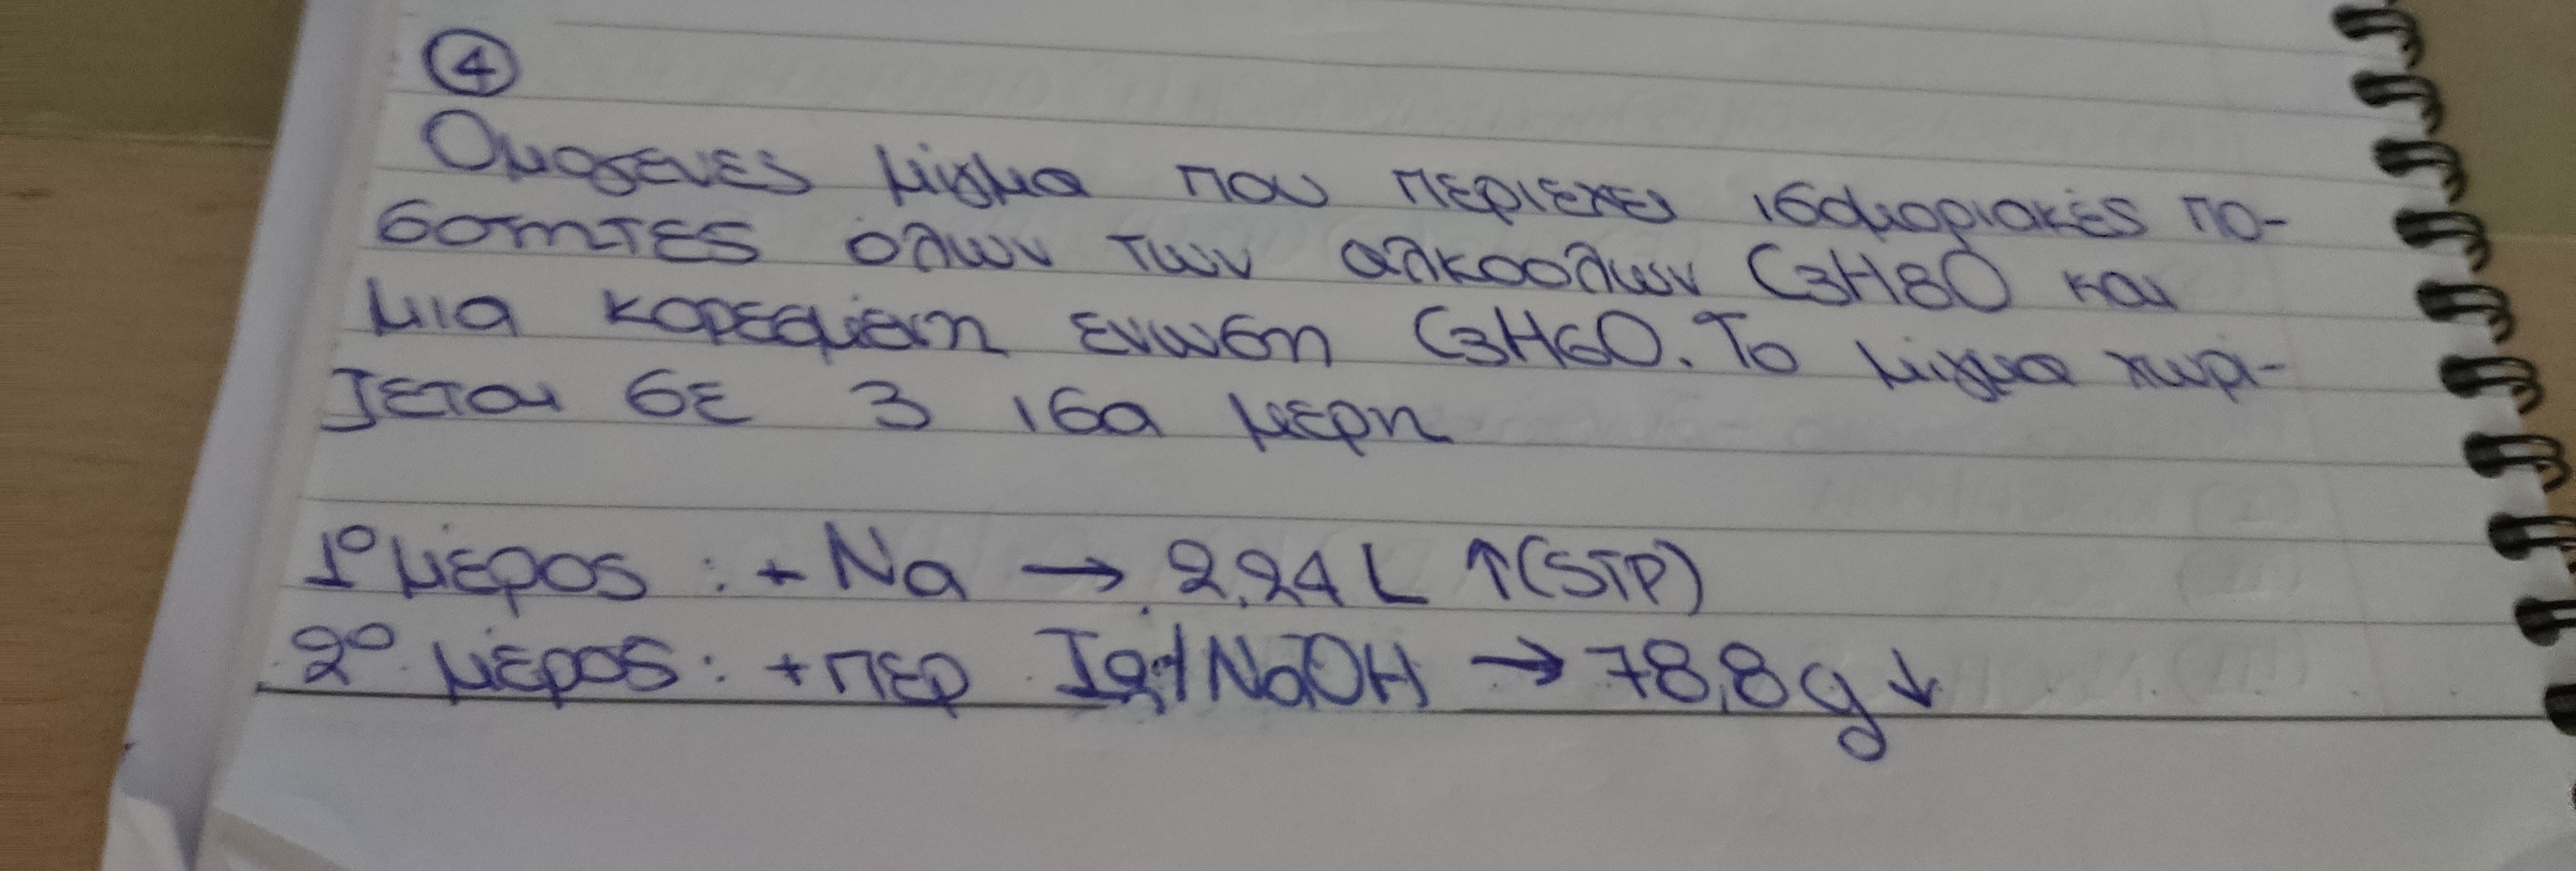 ④
Ομογενες μίγμα που περιεχει ισομοριακές πο-
σοτητες όλων των αλκοολων C3H8O και
μια κορεσμένη ενωση C3H6O. Το μιγμα χωρι-
ζεται σε 3 ισα μερη
1º μέρος : + Na → 2,24 L ↑(STP)
2º μέρος : + περ I2/NaOH → 78,8g ↓